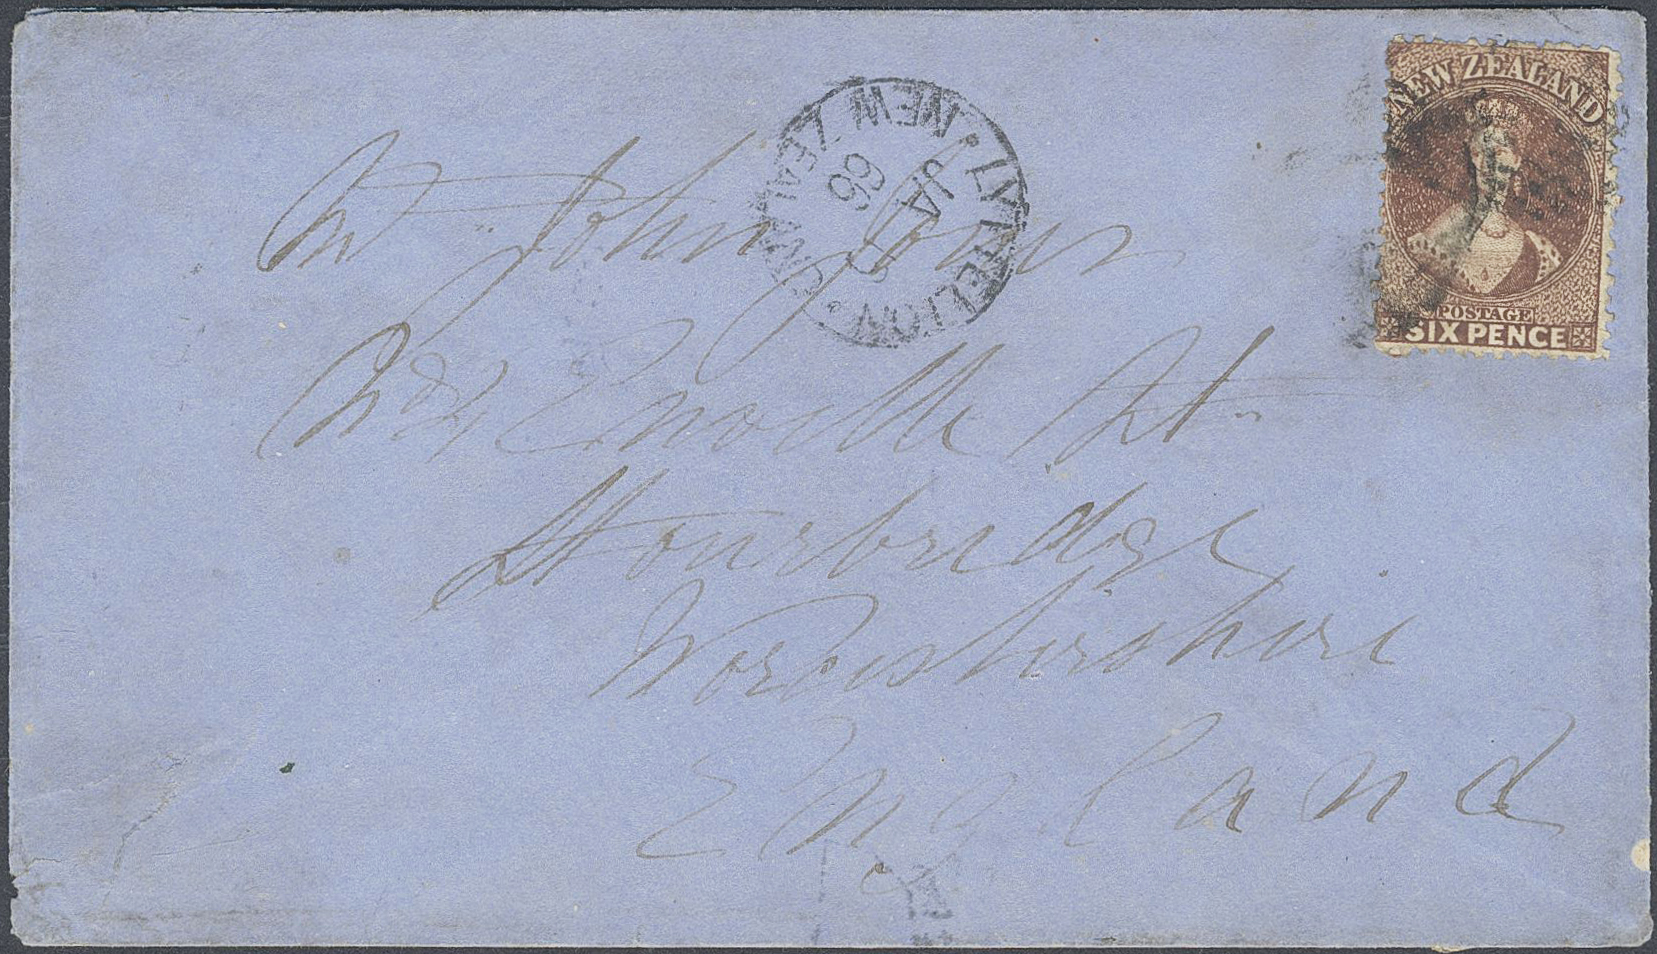 NEW ZEALAND
POSTAGE
SIX PENCE
LYTTELTON · NEW ZEALAND
C
JA 4
66
Mr John Jones
Enville St
Stourbridge
Worcestershire
England